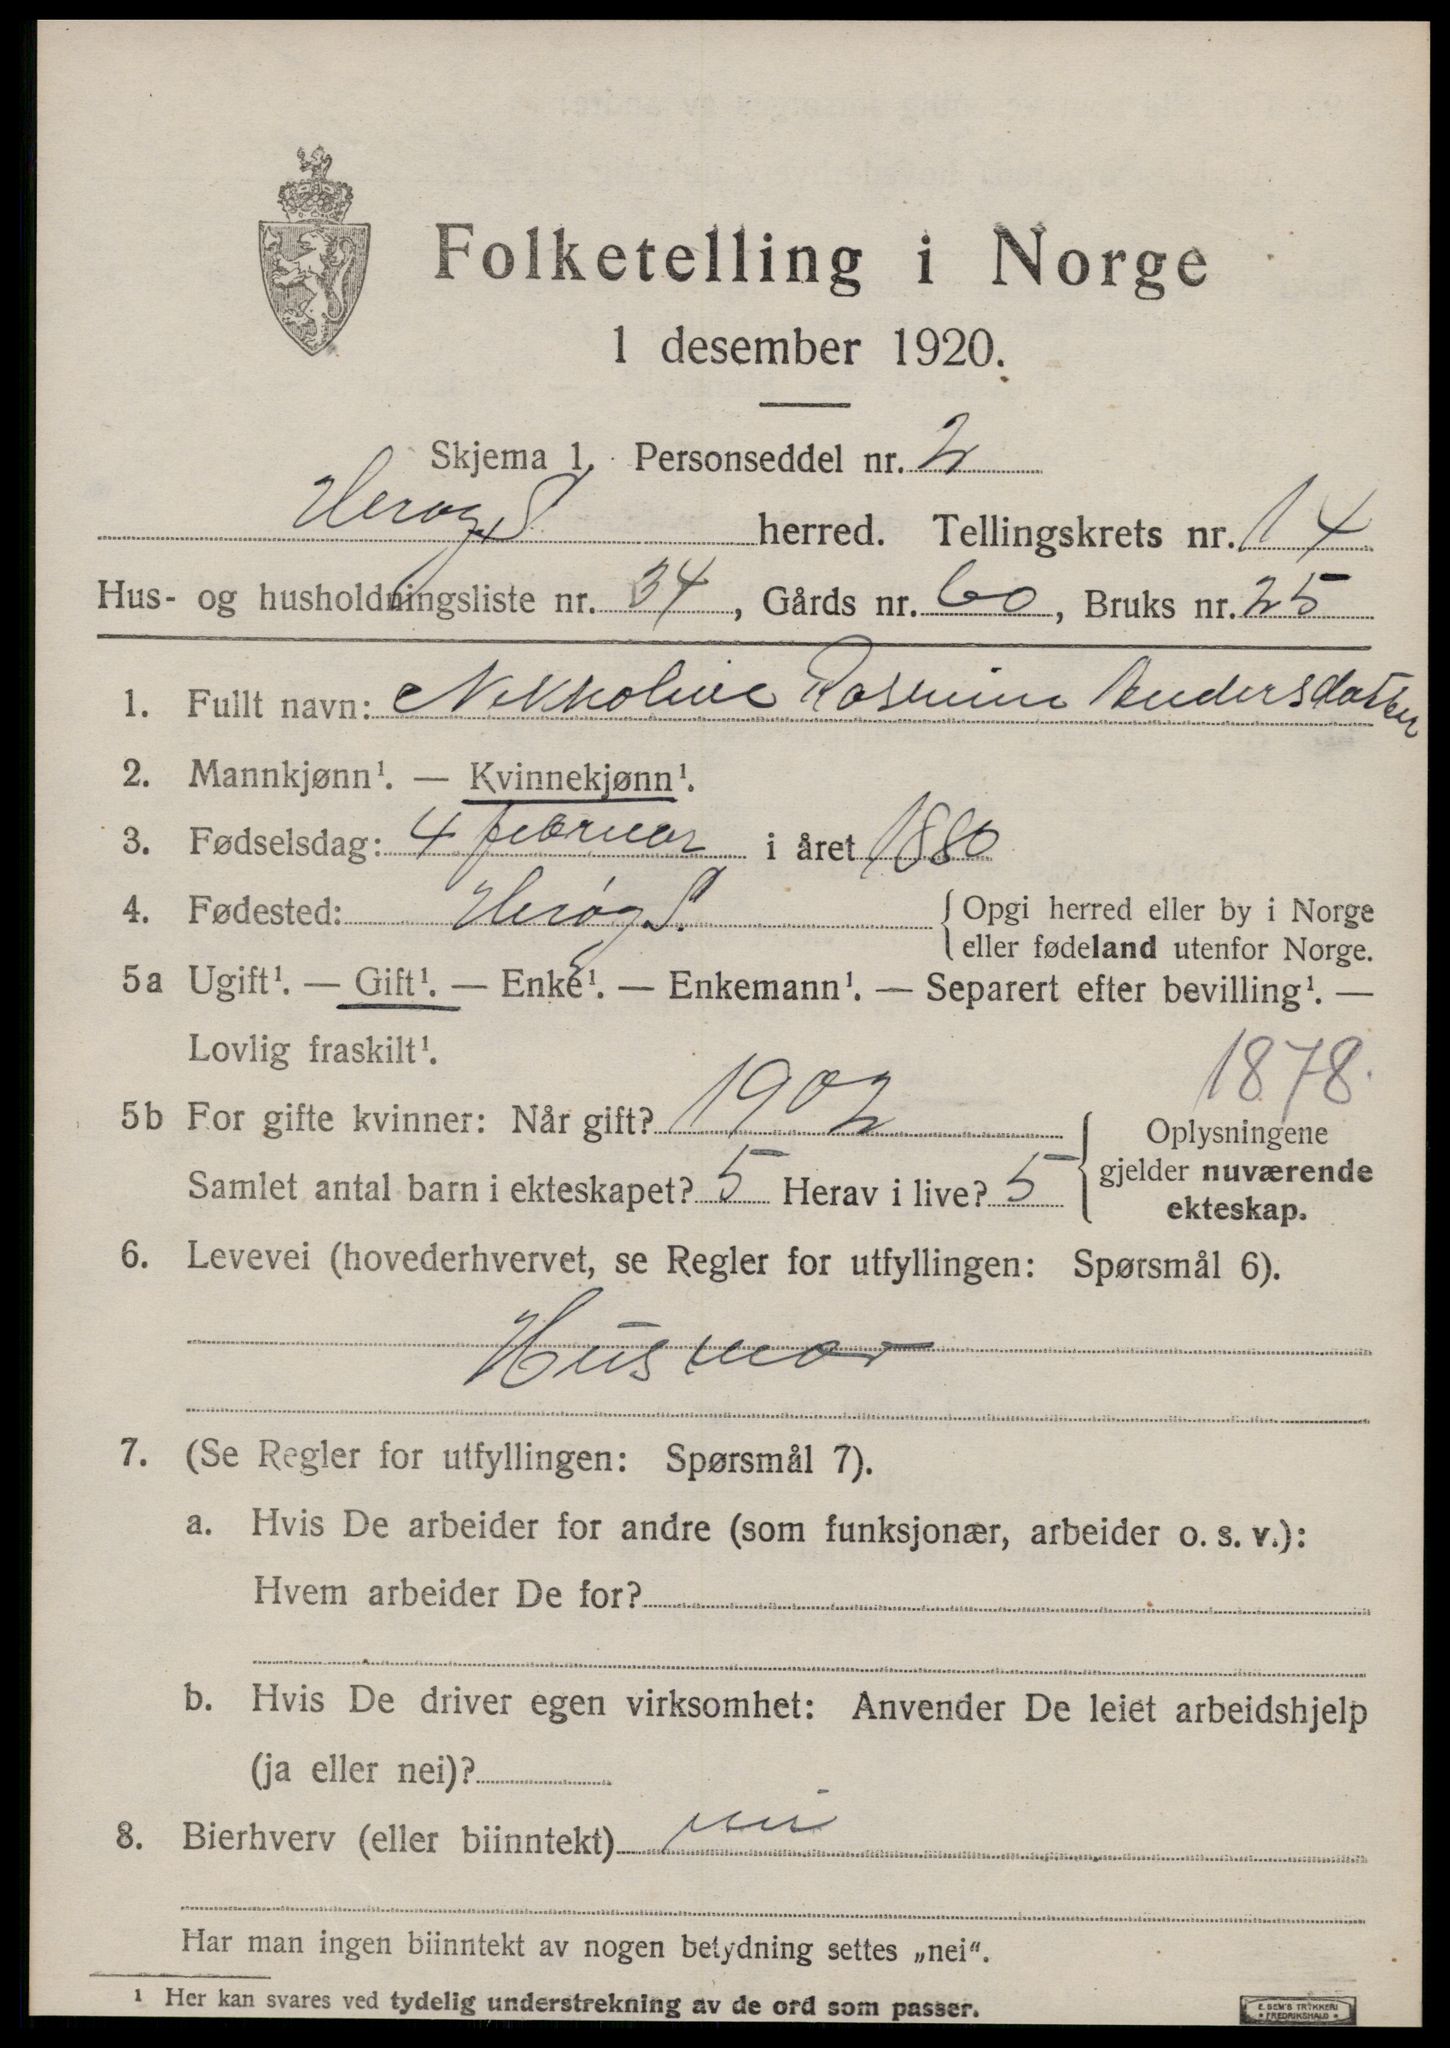 Folketelling i Norge
1 desember 1920.
Skjema 1. Personseddel nr. 2
Herøy S herred. Tellingskrets nr. 14
Hus- og husholdningsliste nr. 34, Gårds nr. 60, Bruks nr. 25
1. Fullt navn: Nikkoline Rasmine Andersdatter
2. Mannkjønn¹. — Kvinnekjønn¹.
3. Fødselsdag: 4 februar i året 1880
4. Fødested: Herøy S. Opgi herred eller by i Norge
eller fødeland utenfor Norge.
5a Ugift¹. — Gift¹. — Enke¹. — Enkemann¹. — Separert efter bevilling¹. —
Lovlig fraskilt¹.
1878.
5b For gifte kvinner: Når gift? 1902
Samlet antal barn i ekteskapet? 5 Herav i live? 5
Oplysningene
gjelder nuværende
ekteskap.
6. Levevei (hovederhvervet, se Regler for utfyllingen: Spørsmål 6).
Husmor
7. (Se Regler for utfyllingen: Spørsmål 7).
a. Hvis De arbeider for andre (som funksjonær, arbeider o. s. v.):
Hvem arbeider De for?
b. Hvis De driver egen virksomhet: Anvender De leiet arbeidshjelp
(ja eller nei)?
8. Bierhverv (eller biinntekt) nei
Har man ingen biinntekt av nogen betydning settes „nei“.
¹ Her kan svares ved tydelig understrekning av de ord som passer.
E. SEM'S TRYKKERI
* FREDRIKSHALD *